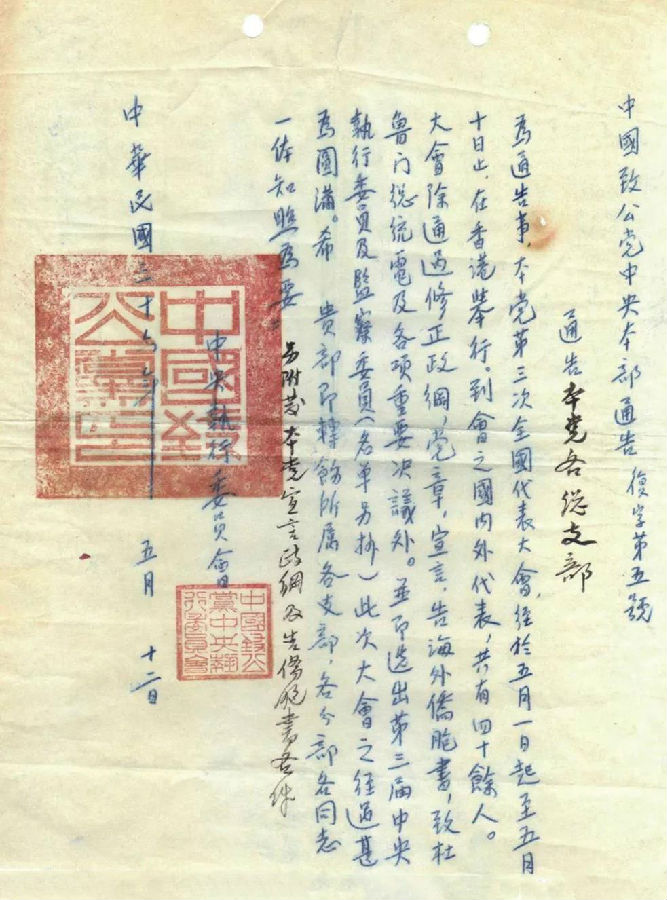 中國致公党中央本部通告 復字第五號
通告本党各總支部
為通告事,本党第三次全國代表大會,經於五月一日起至五月
十日止,在香港举行。到會之國内外代表,共有四十餘人。
大會除通過修正政綱,党章,宣言,告海外僑胞書,致杜
魯门總統電及各項重要决議外。並即选出第三届中央
執行委員及監察委員(名單另抄)此次大會之經過甚
為圓滿。希 貴部即轉飭所属各支部,各分部各同志
一体知照為要。
另附发本党宣言政綱及告僑胞書各件
中央執行委員會
中華民國三十六年 五月 十二日
中國致公黨印
中國致公黨中央執行委員會